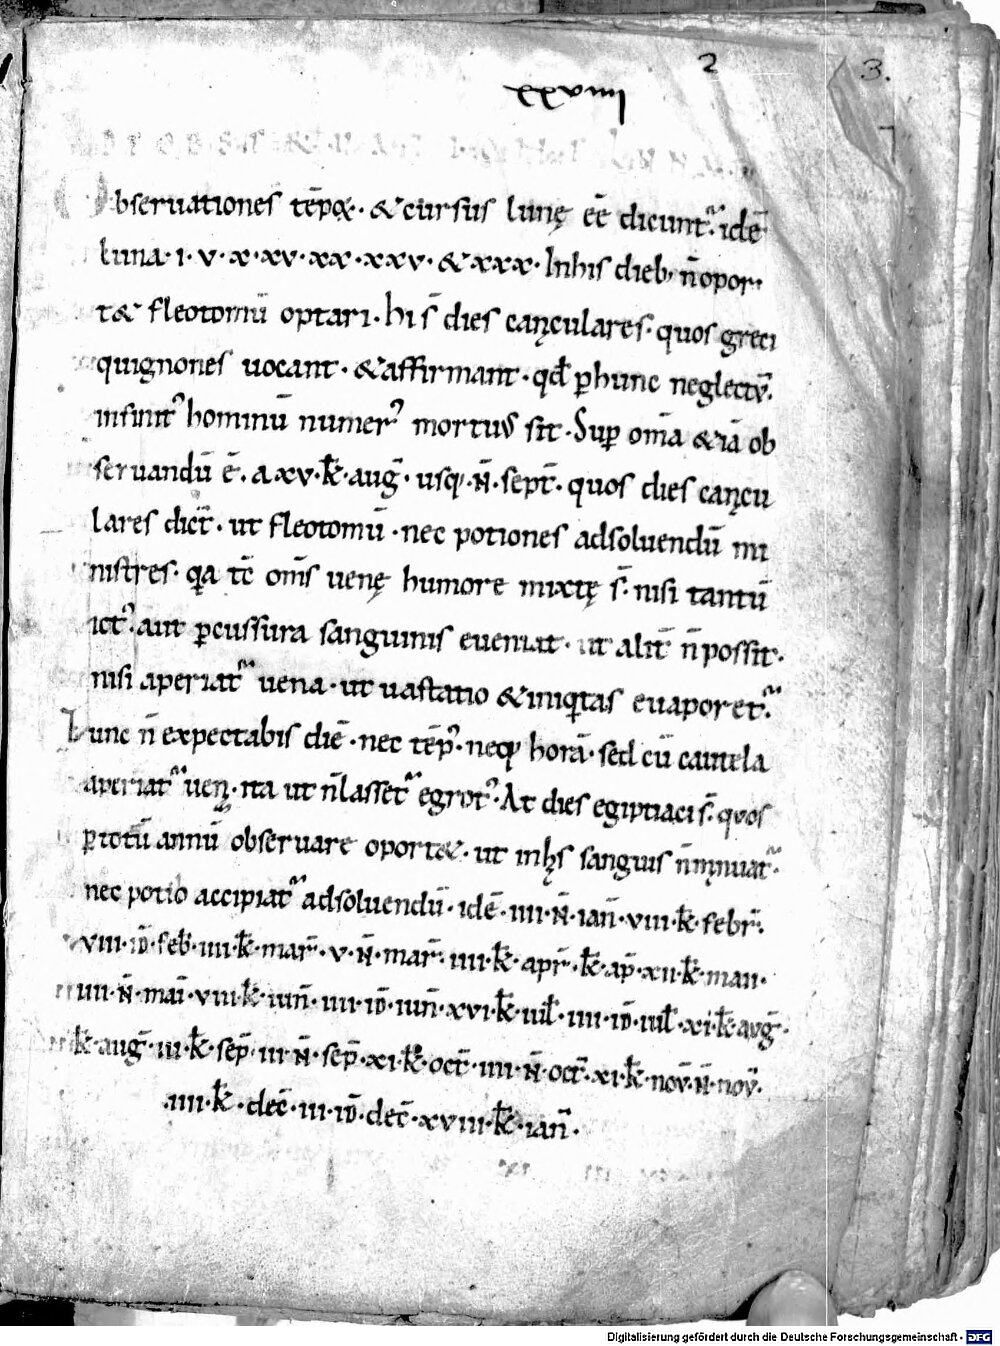 2 3.
xxviiii
bseruationes tēpoꝝ · & cursus lunę eē dicunt᷑ · idē
luna · i · v · x · xv · xx · xxv · & xxx · Inhis dieb; n̄ opor
t& fleotomū optari · hi s̄ dies canculares · quos greci
quignones uocant · & affirmant · qđ ꝑ hunc neglectū ·
infinit᾽ hominū numer᾽ mortuus sit · Suꝑ om̄a & iā ob
seruandū ē · a xv · kł · auḡ · usq; · n̄ · sept̄ · quos dies cancu
lares dict̄ · ut fleotomū · nec potiones adsoluendū mi
nistres · qa tc̄ om̄s uenę humore mixtę s̄ · nisi tantū
ict᾽ · aut ꝑcussura sanguinis eueniat · ut alit̄ n̄ possit ·
nisi aperiat᷑ uena · ut uastatio & iniqtas euaporet᷑ ·
Tunc n̄ expectabis diē · nec tēp᾽ · neq; horā · sed cū cautela
aperiat᷑ uen · ita ut n̄ lasset᷑ egrot᾽ · At dies egiptiaci s̄ · quos
ꝑ totū annū obseruare oport& · ut in his sanguis n̄ minuat᷑ ·
nec potio accipiat᷑ adsoluendū · idē · iiii · n̄ · ian̄ · viii · kł · febr̄ ·
viii · id̄ · feb̄ · iiii · kł · mar̄ · v · n̄ · mar̄ · iiii · kł · apr̄ · kł · ap̄ · xii · kł · maii ·
iiii · n̄ · mai · viii · kł · iun̄ · iiii · id̄ · iun̄ · xvi · kł · iul̄ · iiii · id̄ · iul̄ · xi · kł · auḡ ·
kł · auḡ · iii · kł · sep̄ · iii · n̄ · sep̄ · xi · kł · oct̄ · iiii · n̄ · oct̄ · xi · kł · nov̄ · n̄ · nov̄ ·
· iiii · kł · dec̄ · iii · id̄ · dec̄ · xviii · kł · ian̄ ·
Digitalisierung gefördert durch die Deutsche Forschungsgemeinschaft - DFG